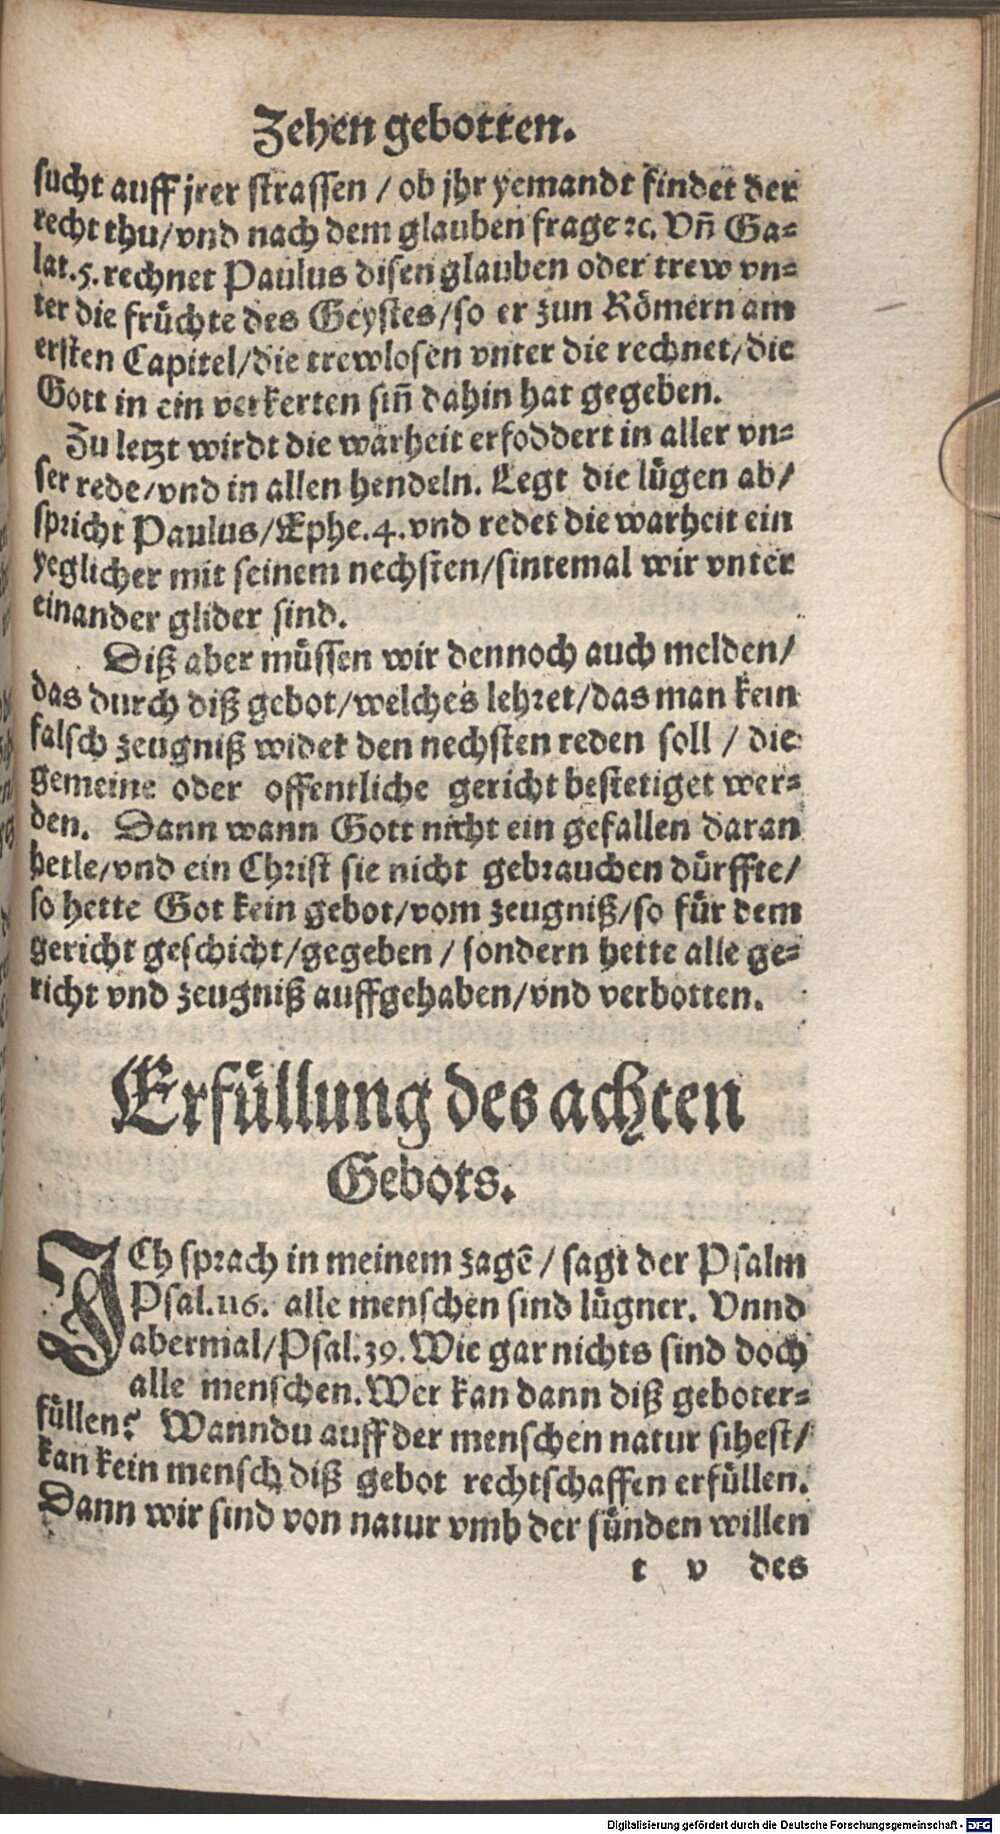 Zehen gebotten.
sucht auff jrer strassen / ob jhr yemandt findet der
recht thu/vnd nach dem glauben frage ꝛc. Vñ Ga-
lat.5. rechnet Paulus disen glauben oder trew vn-
ter die früchte des Geystes/so er zun Römern am
ersten Capitel/die trewlosen vnter die rechnet/die
Gott in ein verkerten siñ dahin hat gegeben.
Zu letzt wirdt die warheit erfoddert in aller vn-
ser rede/vnd in allen hendeln. Legt die lügen ab/
spricht Paulus/Ephe.4.vnd redet die warheit ein
yeglicher mit seinem nechsten/sintemal wir vnter
einander glider sind.
Diß aber müssen wir dennoch auch melden/
das durch diß gebot/welches lehret/das man kein
falsch zeugniß wider den nechsten reden soll / die
gemeine oder offentliche gericht bestetiget wer-
den. Dann wann Gott nicht ein gefallen daran
hette/vnd ein Christ sie nicht gebrauchen dürffte/
so hette Got kein gebot/vom zeugniß/so für dem
gericht geschicht/gegeben / sondern hette alle ge-
richt vnd zeugniß auffgehaben/vnd verbotten.
Erfüllung des achten
Gebots.
ICh sprach in meinem zagē / sagt der Psalm
Psal.116. alle menschen sind lügner. Vnnd
abermal/Psal.39. Wie gar nichts sind doch
alle menschen. Wer kan dann diß geboter-
füllen? Wanndu auff der menschen natur sihest/
kan kein mensch diß gebot rechtschaffen erfüllen.
Dann wir sind von natur vmb der sünden willen
t v des
Digitalisierung gefördert durch die Deutsche Forschungsgemeinschaft - DFG